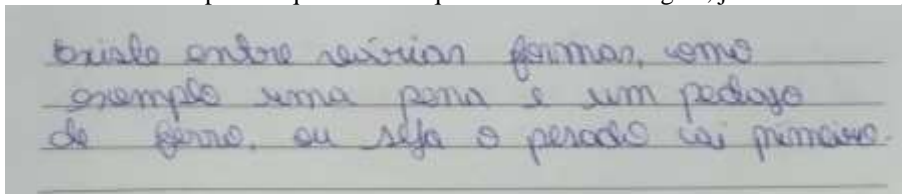 existe entre várias formas, como
exemplo uma pena e um pedaço
de ferro, ou seja o pesado cai primeiro.